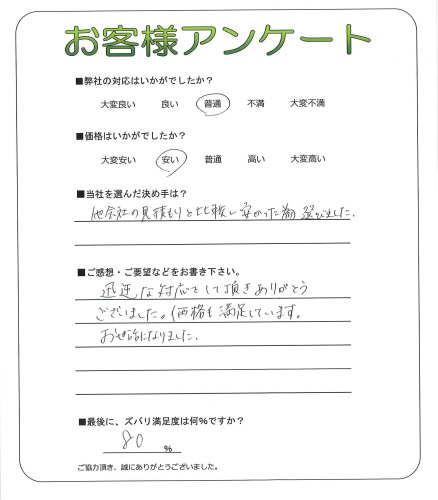 お客様アンケート
■弊社の対応はいかがでしたか？
大変良い 良い 普通 不満 大変不満
■価格はいかがでしたか？
大変安い 安い 普通 高い 大変高い
■当社を選んだ決め手は？
他会社の見積もりと比較し安かった為 選びました.
■ご感想・ご要望などをお書き下さい。
迅速な対応をして頂きありがとう
ございました。価格も満足しています。
お世話になりました.
■最後に、ズバリ満足度は何%ですか？
80 %
ご協力頂き、誠にありがとうございました。